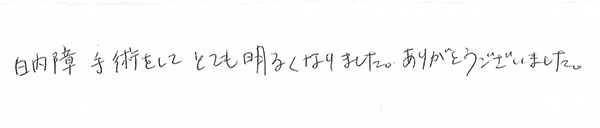 白内障 手術をして とても明るくなりました。ありがとうございました。